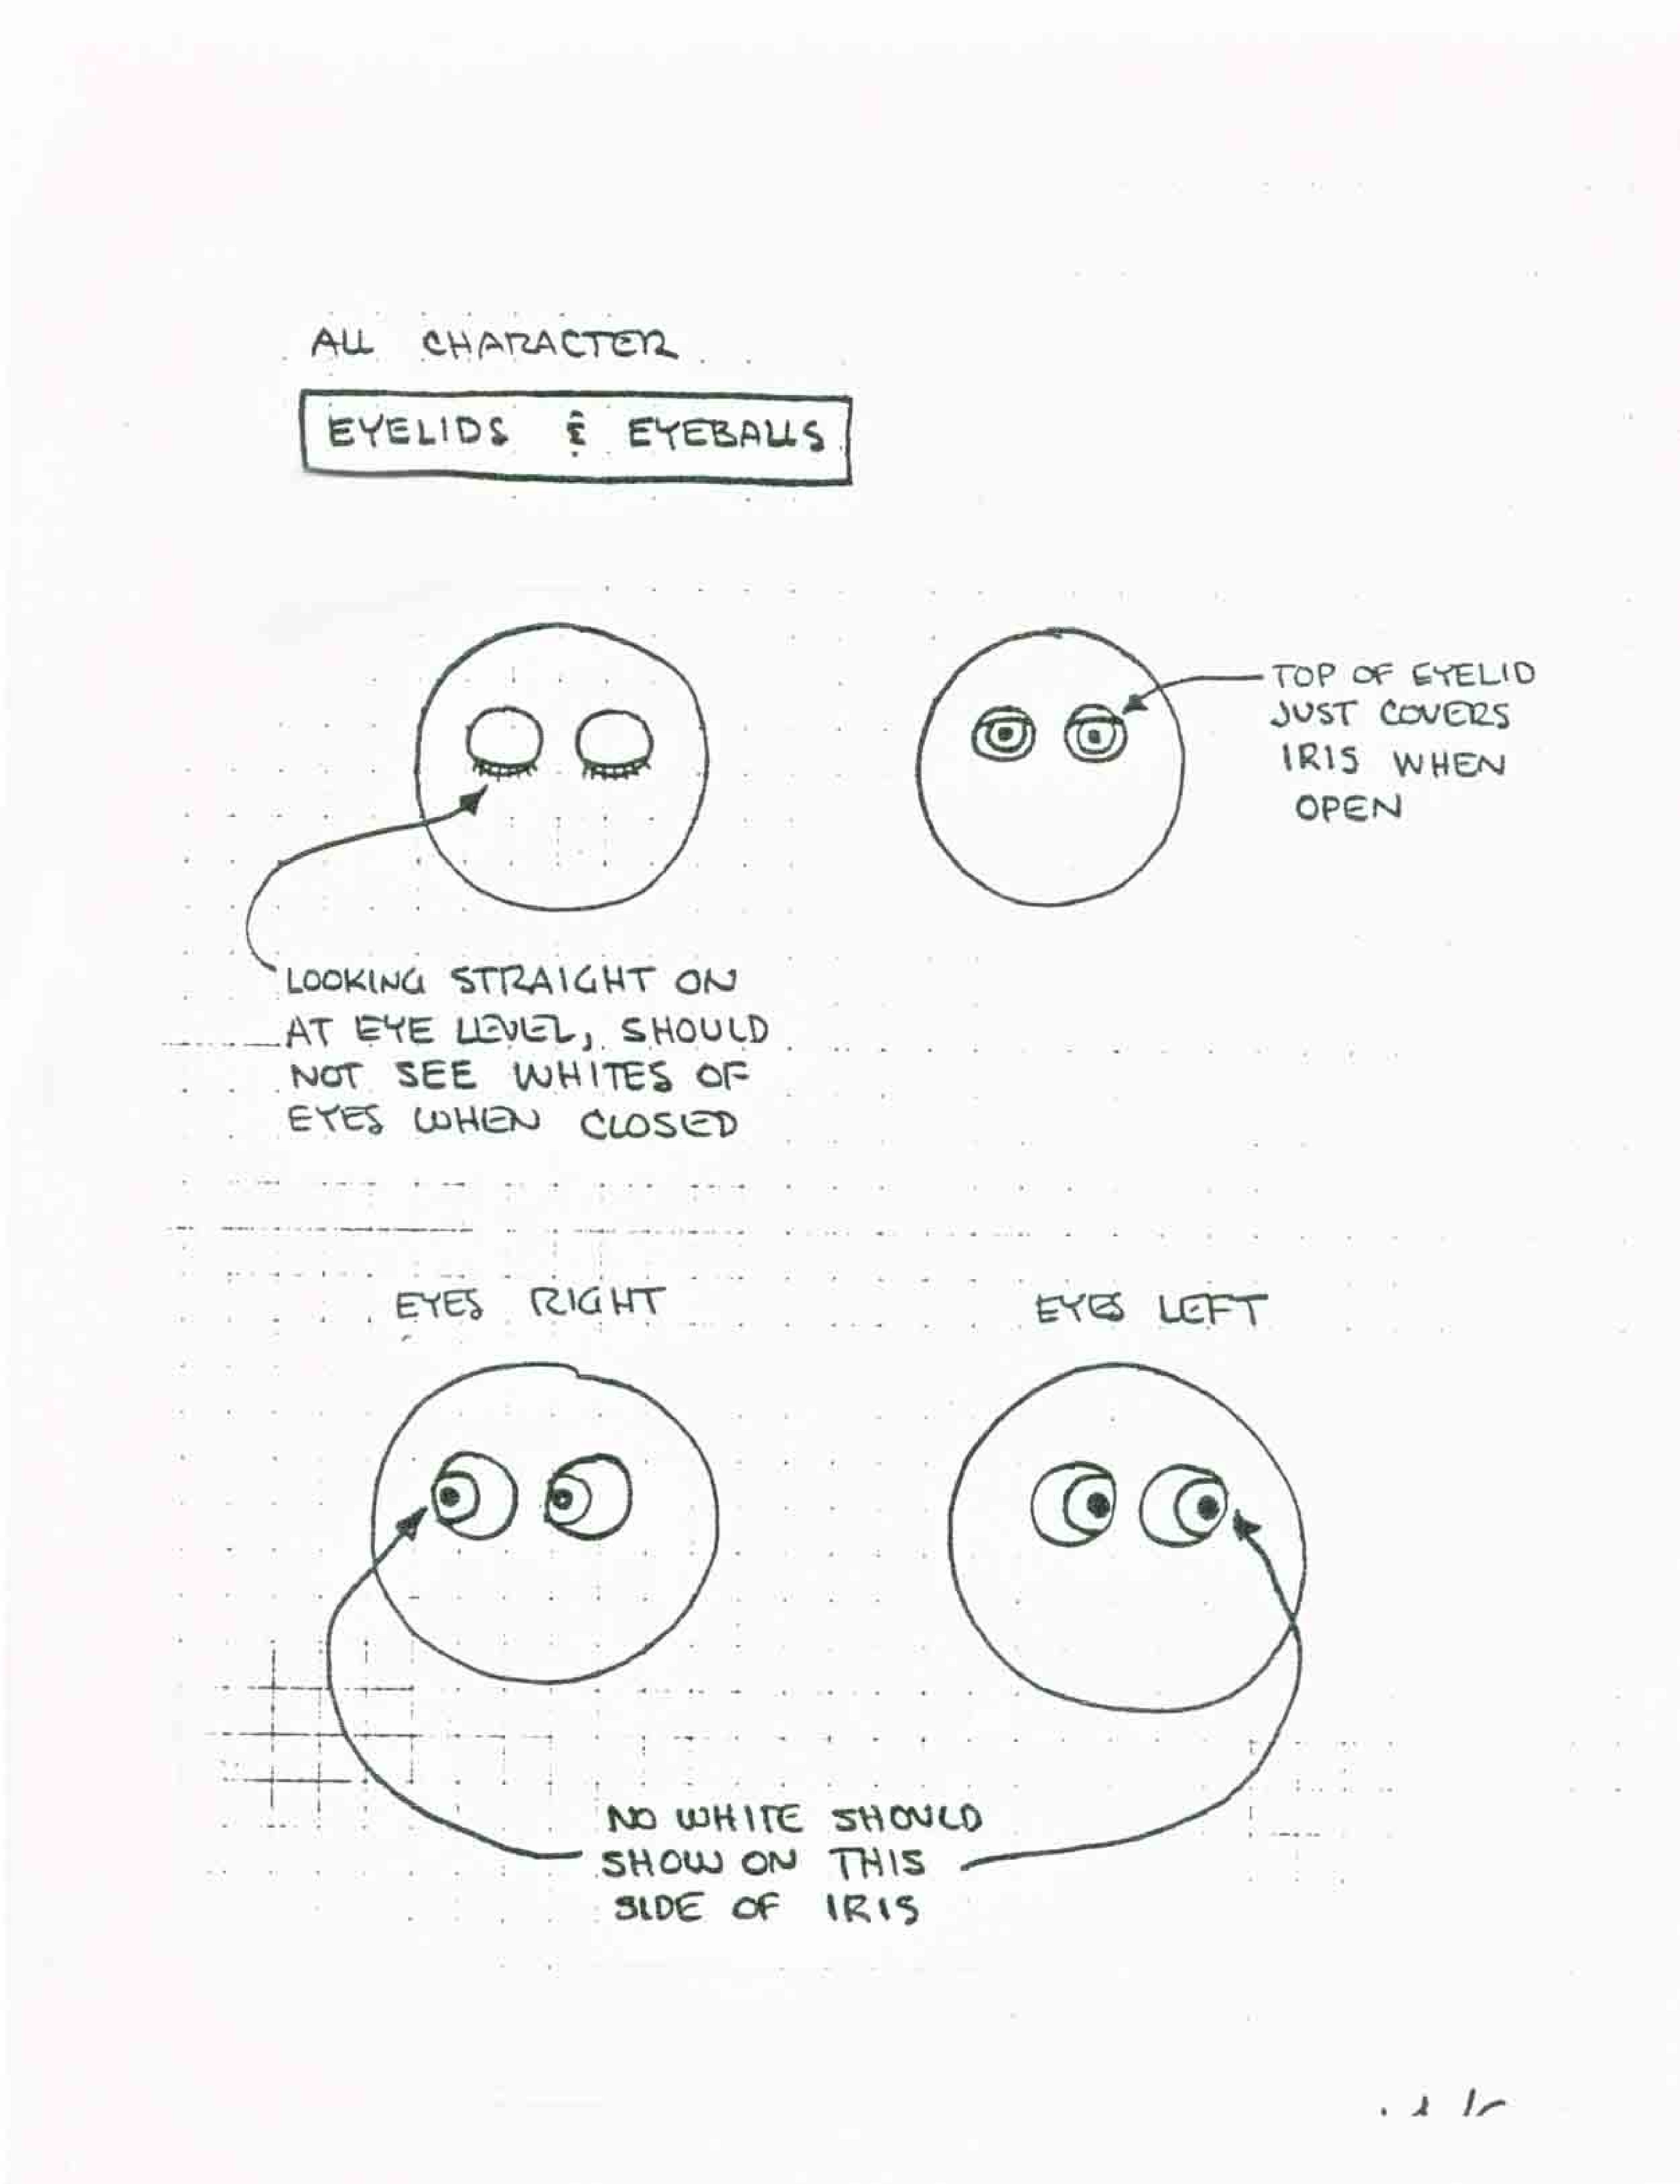 ALL CHARACTER
EYELIDS & EYEBALLS
TOP OF EYELID
JUST COVERS
IRIS WHEN
OPEN
LOOKING STRAIGHT ON
AT EYE LEVEL, SHOULD
NOT SEE WHITES OF
EYES WHEN CLOSED
EYES RIGHT
EYES LEFT
NO WHITE SHOULD
SHOW ON THIS
SIDE OF IRIS